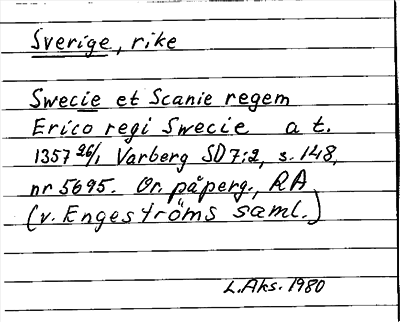 Sverige, rike
Swecie et Scanie regem
Erico regi Swecie a t.
1357 26/1 Varberg SD7:2, s. 148,
nr 5695. Or. på perg., RA
(v. Engeströms saml.)
L.Aks. 1980